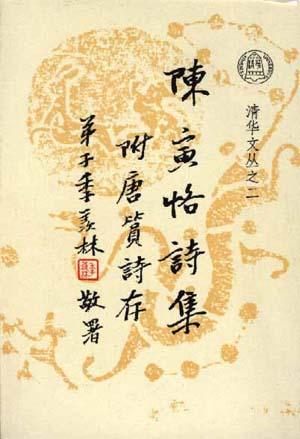 清华文丛之二
陳寅恪詩集
附唐篔詩存
弟子季羡林敬署